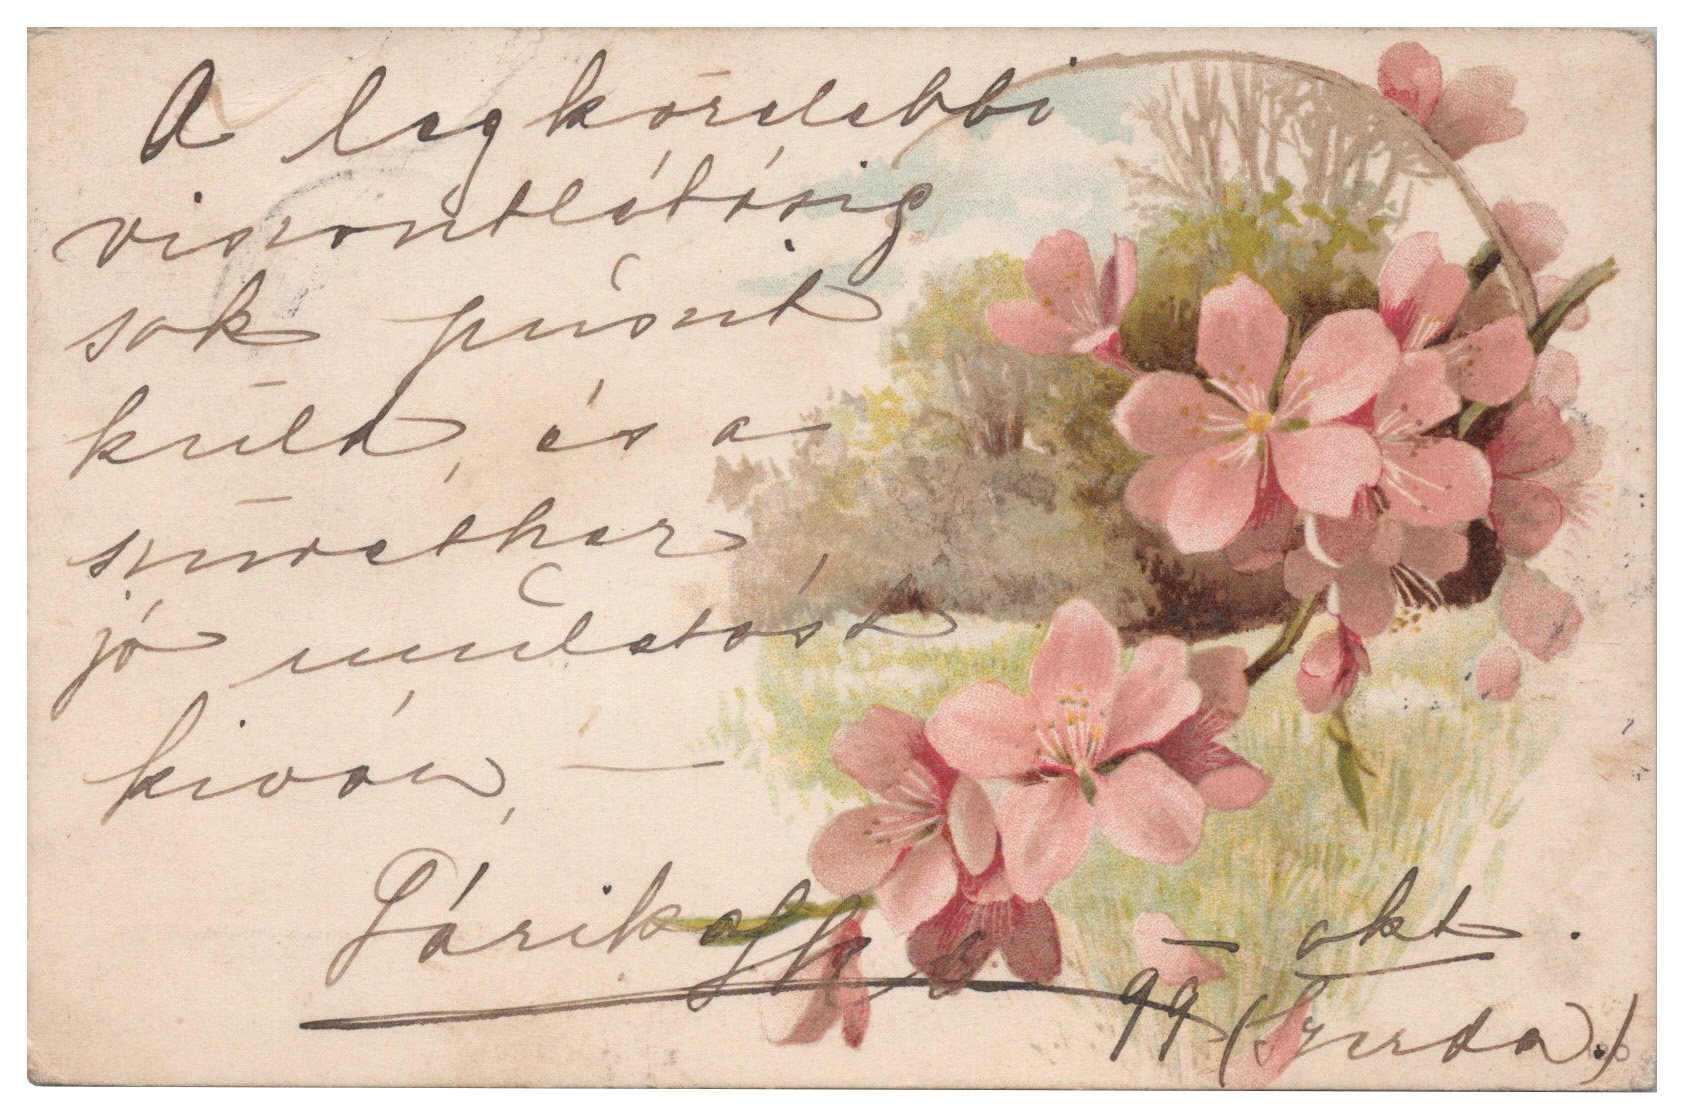 A legközelebbi
viszontlátásig
sok puszit
küld, és a
szüvethez
jó mulatást
kiván, —
Sárika
99 okt.
(Szerda.)